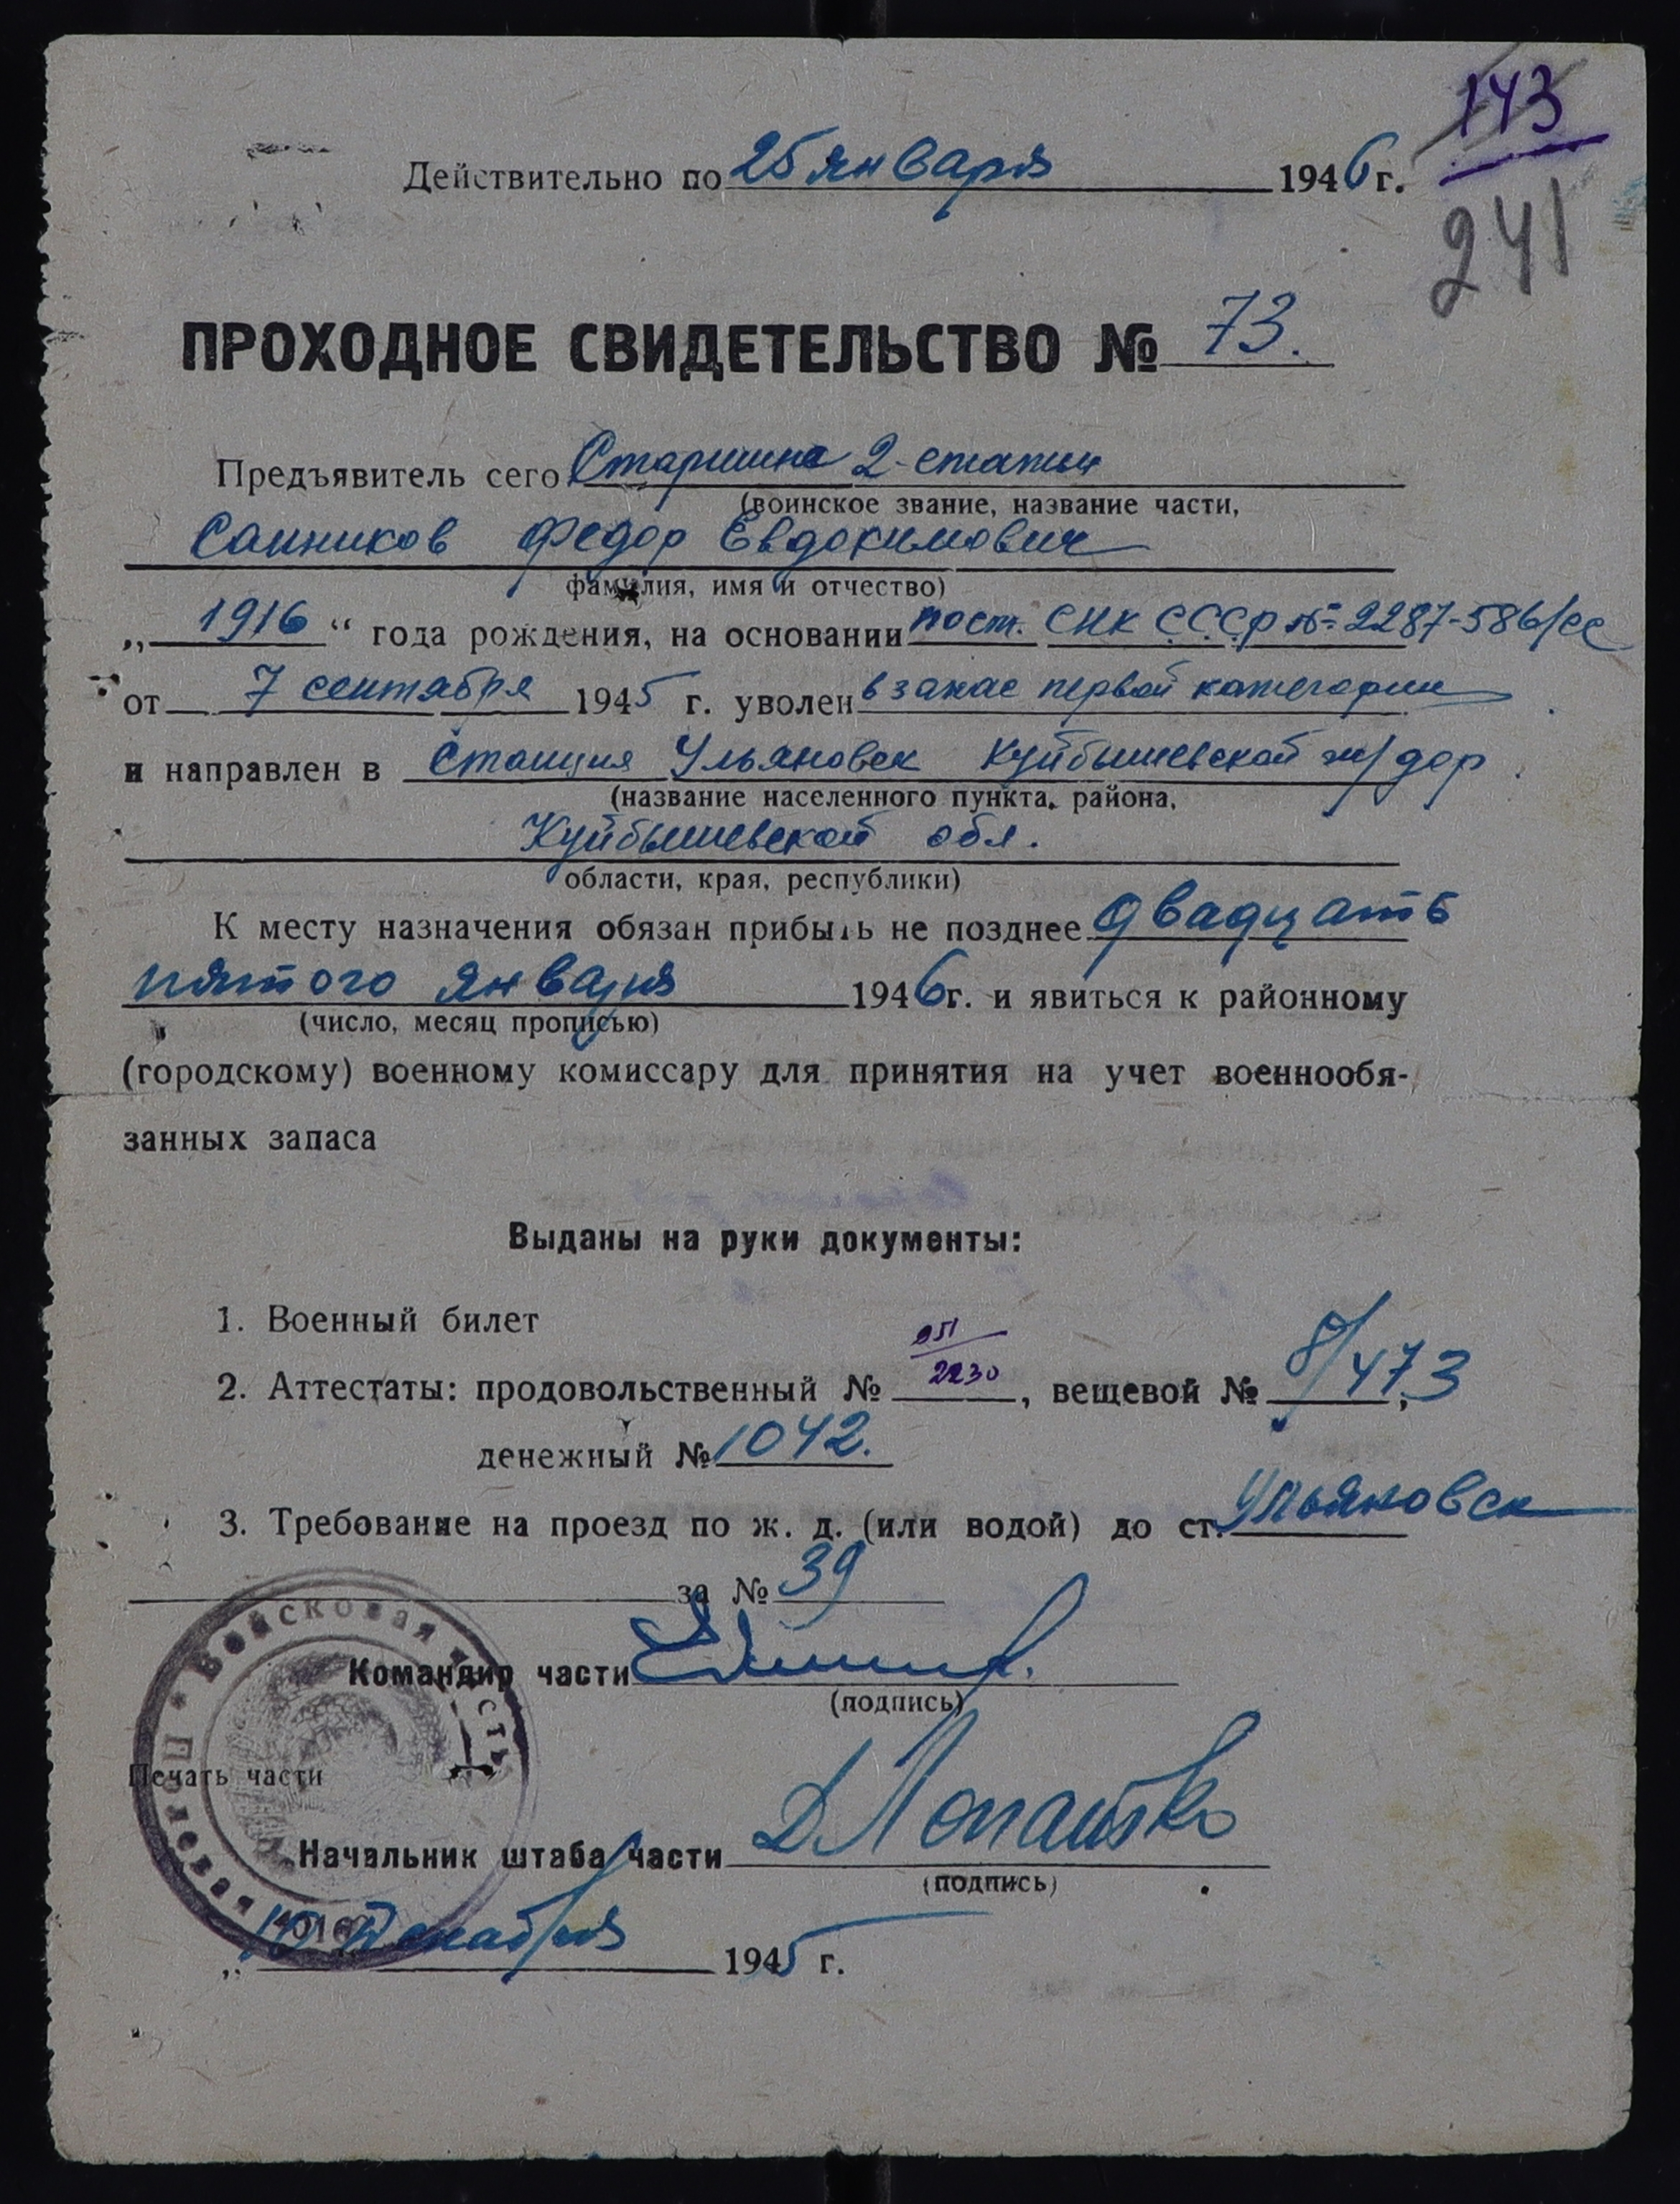 143
Действительно по 25 января 1946 г.
241
ПРОХОДНОЕ СВИДЕТЕЛЬСТВО № 73.
Предъявитель сего Старшина 2-статьи
(воинское звание, название части,
Санников Федор Евдокимович
фамилия, имя и отчество)
„ 1916 “ года рождения, на основании пост. СНК СССР № 2287-586/сс
от 7 сентября 1945 г. уволен в запас первой категории
и направлен в Станция Ульяновск Куйбышевской ж/дор.
(название населенного пункта, района,
Куйбышевской обл.
области, края, республики)
К месту назначения обязан прибыть не позднее двадцать
пятого января 1946 г. и явиться к районному
(число, месяц прописью)
(городскому) военному комиссару для принятия на учет военнообя-
занных запаса
Выданы на руки документы:
1. Военный билет
2. Аттестаты: продовольственный № 2230, вещевой № 8/473,
денежный № 1042.
3. Требование на проезд по ж. д. (или водой) до ст. Ульяновск
за № 39
Войсковая часть
Полевая
Командир части
(подпись)
Печать части
Начальник штаба части ДЛопатко
(подпись)
„ 10 декабря 1945 г.